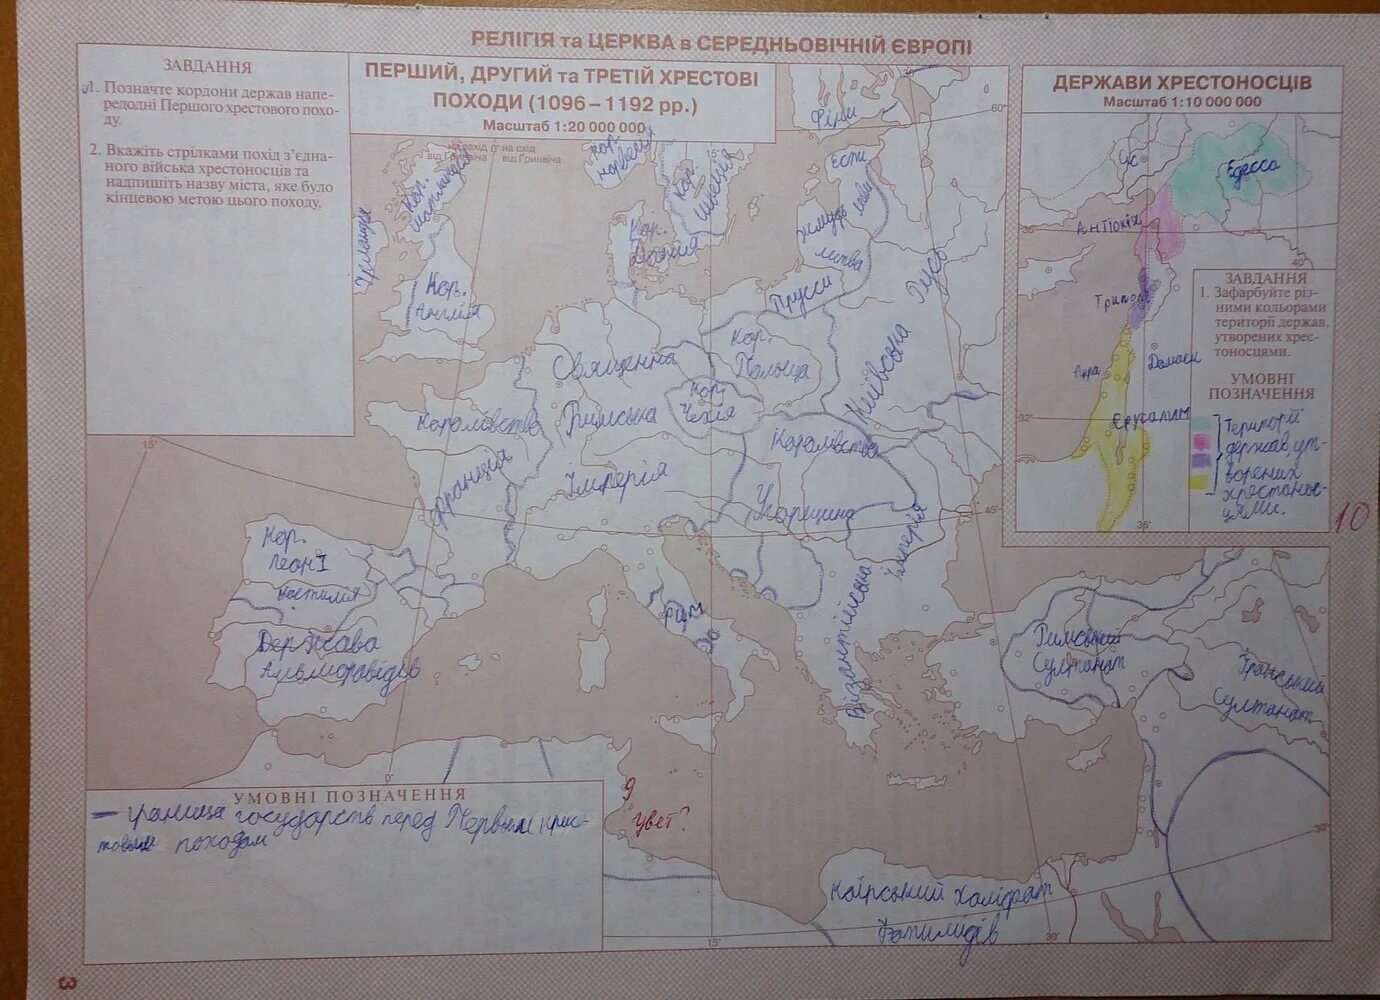 РЕЛІГІЯ та ЦЕРКВА в СЕРЕДНЬОВІЧНІЙ ЄВРОПІ
ЗАВДАННЯ
1. Позначте кордони держав напе-
редодні Першого хрестового похо-
ду.
2. Вкажіть стрілками похід з'єдна-
ного війська хрестоносців та
надпишіть назву міста, яке було
кінцевою метою цього походу.
ПЕРШИЙ, ДРУГИЙ та ТРЕТІЙ ХРЕСТОВІ
ПОХОДИ (1096–1192 рр.)
Масштаб 1:20 000 000
на захід 0° на схід
від Ґринвіча від Ґринвіча
15°
30°
60°
Фіни
Ести
Кор.
Норвегія
Кор.
Швеція
Кор.
Шотландія
Ірландія
Кор.
Англія
Кор.
Данія
Жмудь
Литва
Пруси
Русь
Київська
Кор.
Польща
Священна
Римська
Імперія
Кор.
Чехія
Королівство
Франція
Королівство
Угорщина
15°
45°
Кор.
Леон І
Кастилія
Держава
Альморавідів
Рим
Візантійська
Імперія
Румський
Султанат
Іранський
Султанат
0°
Каїрський Халіфат
Фатимидів
15°
30°
30°
ДЕРЖАВИ ХРЕСТОНОСЦІВ
Масштаб 1:10 000 000
Едесса
Антіохія
36°
40°
Триполі
Дамаск
Акра
32°
Єрусалим
36°
ЗАВДАННЯ
1. Зафарбуйте різ-
ними кольорами
території держав,
утворених хрес-
тоносцями.
УМОВНІ
ПОЗНАЧЕННЯ
Територій
держав, ут-
ворених
хрестонос-
цями.
10
УМОВНІ ПОЗНАЧЕННЯ
– граница государств перед Первым крес-
товым походом
9
цвет?
3